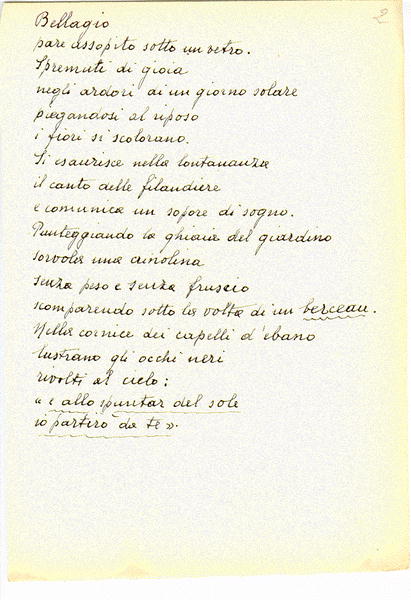 2
Bellagio
pare assopito sotto un vetro.
Spremuti di gioia
negli ardori di un giorno solare
piegandosi al riposo
i fiori si scolorano.
Si esaurisce nella lontananza
il canto delle filandiere
e comunica un sopore di sogno.
Punteggiando la ghiaia del giardino
sorvola una crinolina
senza peso e senza fruscio
scomparendo sotto la volta di un berceau.
Nella cornice dei capelli d'ebano
lustrano gli occhi neri
rivolti al cielo:
"e allo spuntar del sole
io partirò da te".